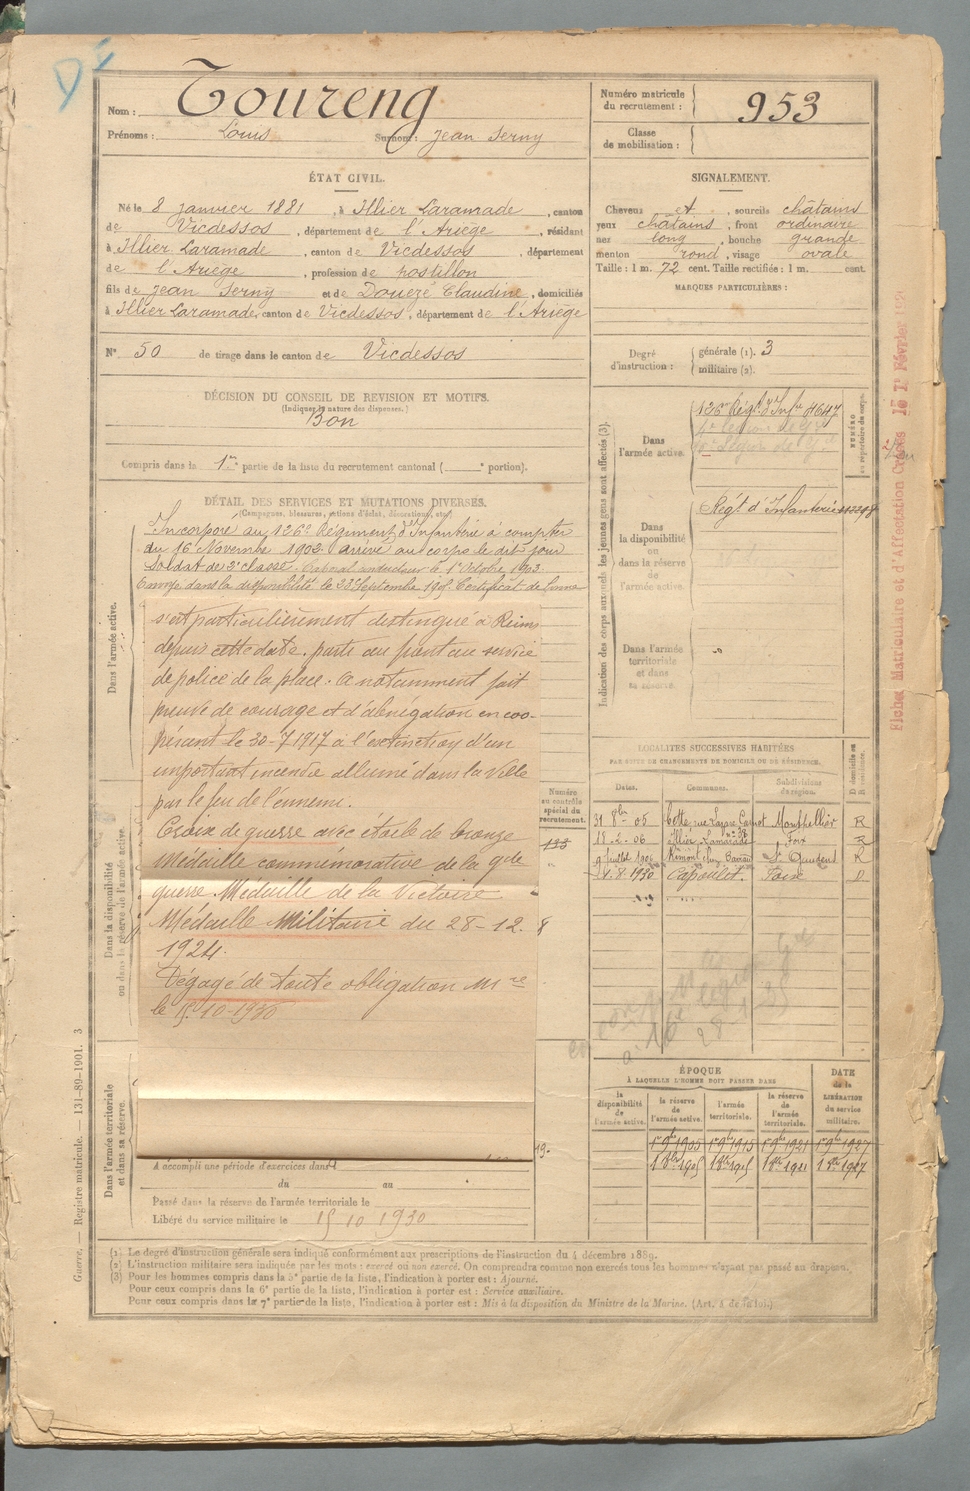 Nom : Toureng
Prénoms : Louis Surnom : Jean Serny
Numéro matricule du recrutement : 953
Classe de mobilisation :
ÉTAT CIVIL.
Né le 8 janvier 1881, à Illier Laramade, canton
de Vicdessos, département de l'Ariège, résidant
à Illier Laramade, canton de Vicdessos, département
de l'Ariège, profession de postillon
fils de Jean Serny et de Douezé Claudine, domiciliés
à Illier Laramade, canton de Vicdessos, département de l'Ariège
N° 50 de tirage dans le canton de Vicdessos
SIGNALEMENT.
Cheveux et, sourcils châtains
yeux châtains, front ordinaire
nez long, bouche grande
menton rond, visage ovale
Taille : 1 m. 72 cent. Taille rectifiée : 1 m. cent.
MARQUES PARTICULIÈRES :
Degré d'instruction : générale (1). 3
militaire (2).
DÉCISION DU CONSEIL DE REVISION ET MOTIFS.
(Indiquer la nature des dispenses.)
Bon
Compris dans la 1re partie de la liste du recrutement cantonal ( e portion).
DÉTAIL DES SERVICES ET MUTATIONS DIVERSES.
(Campagnes, blessures, actions d'éclat, décorations, etc.)
Dans l'armée active.
Incorporé au 126e Régiment d'Infanterie à compter
du 16 Novembre 1902 arrivé au corps le dit jour
Soldat de 2e classe. Caporal le 1er Octobre 1903.
Envoyé dans la disponibilité le 23 Septembre 1905 Certificat de bonne
s'est particulièrement distingué à Reims
depuis cette date. parte au front au service
de police de la place. a notamment fait
preuve de courage et d'abnégation en coo-
pérant le 30-7 1917 à l'extinction d'un
important incendie allumé dans la ville
par le feu de l'ennemi.
Croix de guerre avec étoile de bronze
Médaille commémorative de la gde
guerre. Médaille de la Victoire
Médaille Militaire du 28-12.
1924.
Dégagé de toute obligation Mre
le 15-10-1930
Dans la disponibilité ou dans la réserve de l'armée active.
Dans l'armée territoriale et dans sa réserve.
A accompli une période d'exercices dans
du au
Passé dans la réserve de l'armée territoriale le
Libéré du service militaire le 15 10 1930
Numéro au contrôle spécial du recrutement.
Indication des corps auxquels les jeunes gens sont affectés (3).
NUMÉRO au répertoire du corps.
Dans l'armée active. 126e Régt d'Infie
Dans la disponibilité ou dans la réserve de l'armée active. Régt d'Infanterie
Dans l'armée territoriale et dans sa réserve.
LOCALITÉS SUCCESSIVES HABITÉES
PAR SUITE DE CHANGEMENTS DE DOMICILE OU DE RÉSIDENCE.
Dates. Communes. Subdivisions de région. D domicile ou R résidence.
31 8bre 05 Cette rue Lazare Carnot n° 38 Montpellier R
18-2-06 Illier Laramade Foix R
9 juillet 1906 St Gaudens R
1.8.1930 Capoulet. Foix D
ÉPOQUE
À LAQUELLE L'HOMME DOIT PASSER DANS
la disponibilité de l'armée active. la réserve de l'armée active. l'armée territoriale. la réserve de l'armée territoriale. DATE de la LIBÉRATION du service militaire.
1r 9bre 1905 1r 9bre 1915 1r 9bre 1921 1r 9bre 1927
1 8bre 1905 1 8bre 1915 1 8bre 1921 1 8bre 1927
(1) Le degré d'instruction générale sera indiqué conformément aux prescriptions de l'instruction du 4 décembre 1889.
(2) L'instruction militaire sera indiquée par les mots : exercé ou non exercé. On comprendra comme non exercés tous les hommes n'ayant pas passé au drapeau.
(3) Pour les hommes compris dans la 5e partie de la liste, l'indication à porter est : Ajourné.
Pour ceux compris dans la 6e partie de la liste, l'indication à porter est : Service auxiliaire.
Pour ceux compris dans la 7e partie de la liste, l'indication à porter est : Mis à la disposition du Ministre de la Marine.
Guerre. — Registre matricule. — 131-89-1901. 3
Fiches Matriculaire et d'Affectation Créées le 1r Février